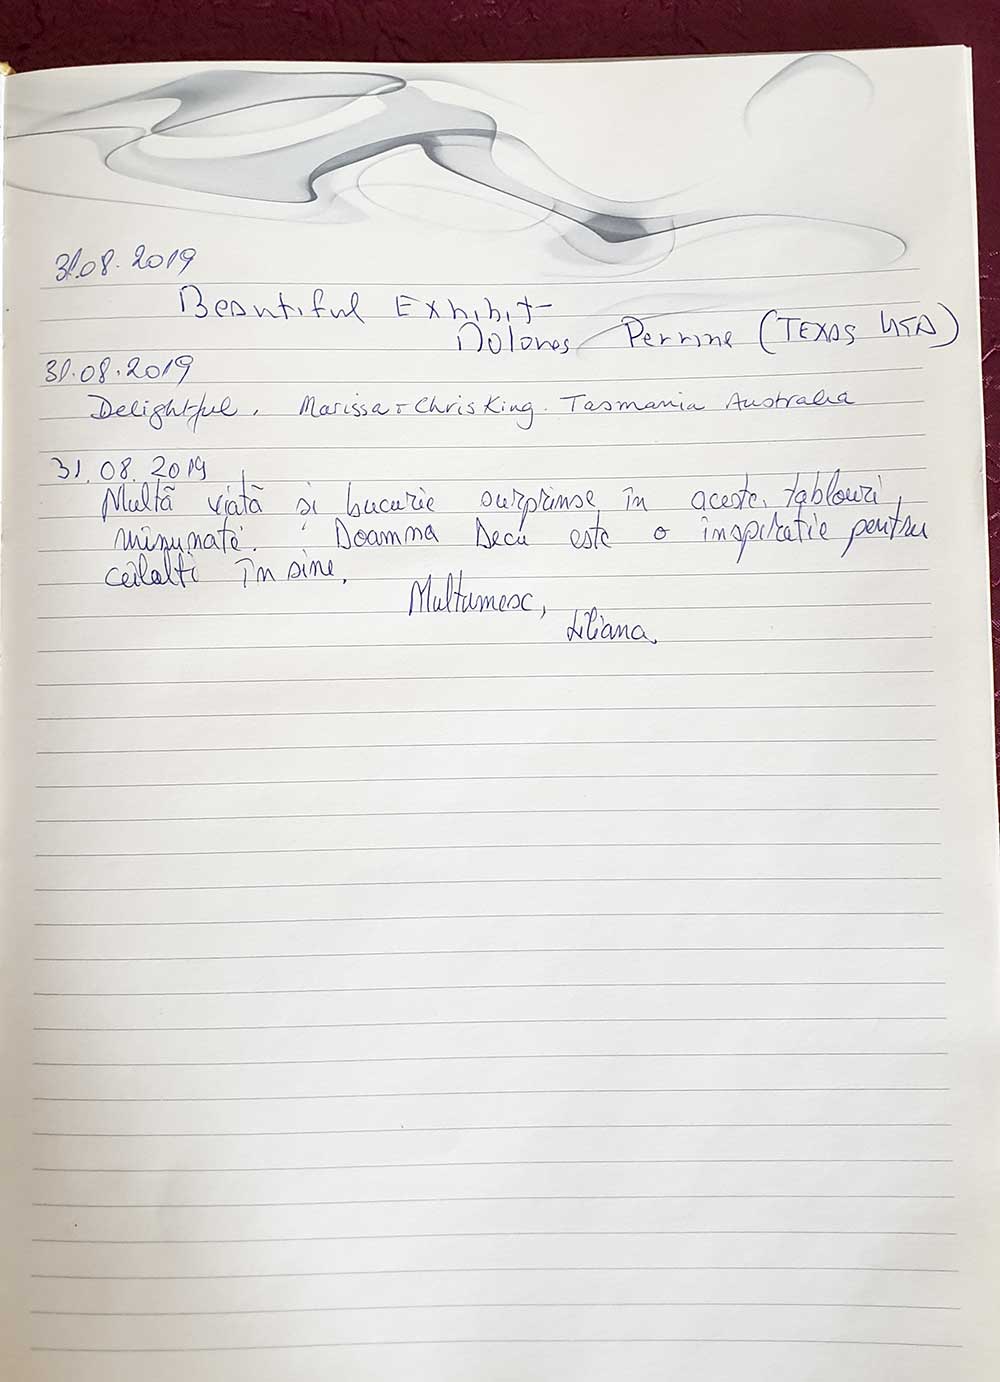 31.08.2019
Beautiful Exhibit
Dolores Perrine (TEXAS USA)
31.08.2019
Delightful. Marissa + Chris King. Tasmania Australia
31.08.2019
Multă viată și bucurie surprinse în aceste tablouri
minunate. Doamna Decu este o inspiratie pentru
ceilalti în sine.
Multumesc,
Liliana.